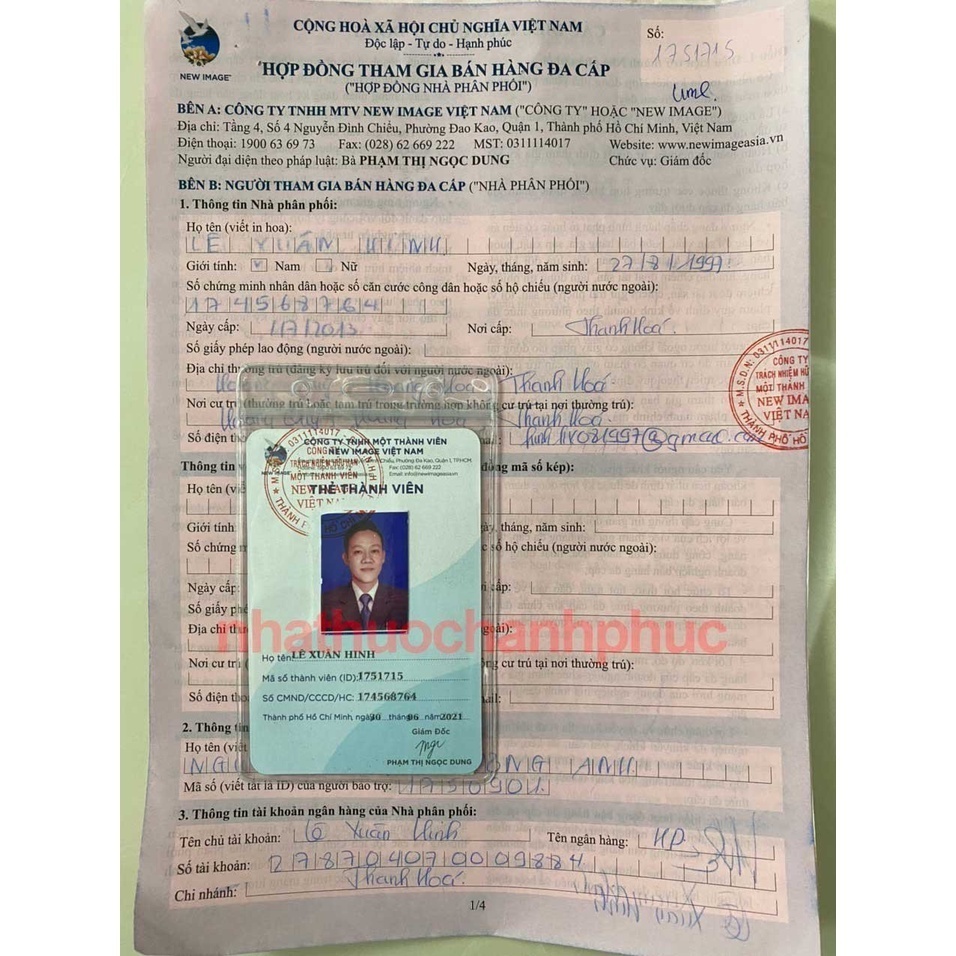 CỘNG HOÀ XÃ HỘI CHỦ NGHĨA VIỆT NAM
Độc lập - Tự do - Hạnh phúc
Số:
1751715
NEW IMAGE
HỢP ĐỒNG THAM GIA BÁN HÀNG ĐA CẤP
("HỢP ĐỒNG NHÀ PHÂN PHỐI")
BÊN A: CÔNG TY TNHH MTV NEW IMAGE VIỆT NAM ("CÔNG TY" HOẶC "NEW IMAGE")
Địa chỉ: Tầng 4, Số 4 Nguyễn Đình Chiểu, Phường Đao Kao, Quận 1, Thành phố Hồ Chí Minh, Việt Nam
Điện thoại: 1900 63 69 73 Fax: (028) 62 669 222 MST: 0311114017 Website: www.newimageasia.vn
Người đại diện theo pháp luật: Bà PHẠM THỊ NGỌC DUNG Chức vụ: Giám đốc
BÊN B: NGƯỜI THAM GIA BÁN HÀNG ĐA CẤP ("NHÀ PHÂN PHỐI")
1. Thông tin Nhà phân phối:
Họ tên (viết in hoa):
LÊ XUÂN HINH
Giới tính: Nam Nữ Ngày, tháng, năm sinh: 27/8/1997
Số chứng minh nhân dân hoặc số căn cước công dân hoặc số hộ chiếu (người nước ngoài):
174568764
Ngày cấp: 1/7/2013 Nơi cấp: Thanh Hoá.
Số giấy phép lao động (người nước ngoài):
Địa chỉ thường trú (đăng ký lưu trú đối với người nước ngoài):
Thanh Hoá
Nơi cư trú (thường trú hoặc tạm trú trong trường hợp không cư trú tại nơi thường trú):
Thanh Hoá
Số điện
M.S.D.N: 0311114017
CÔNG TY
TRÁCH NHIỆM HỮU
MỘT THÀNH
NEW IMA
VIỆT NA
THÀNH PHỐ HỒ
Thông đồng mã số kép):
Họ tên
Giới tính: tháng, năm sinh:
Số chứng số hộ chiếu (người nước ngoài):
Ngày cấp: cấp:
Số giấy
Địa chỉ ngoài):
Nơi cư trú cư trú tại nơi thường trú):
Số điện
CÔNG TY TNHH MỘT THÀNH VIÊN
NEW IMAGE VIỆT NAM
Fax: (028) 62 669 222
Email: info@newimageasia.vn
THẺ THÀNH VIÊN
nhathuochanhphuc
Họ tên: LÊ XUÂN HINH
Mã số thành viên (ID): 1751715
Số CMND/CCCD/HC: 174568764
Thành phố Hồ Chí Minh, ngày 30 tháng 06 năm 2021
Giám Đốc
PHẠM THỊ NGỌC DUNG
2. Thông
Họ tên
ANH
Mã số (viết tắt là ID) của người bảo trợ:
3. Thông tin tài khoản ngân hàng của Nhà phân phối:
Tên chủ tài khoản: Lê Xuân Hinh Tên ngân hàng:
Số tài khoản:
Chi nhánh: Thanh Hoá.
1/4